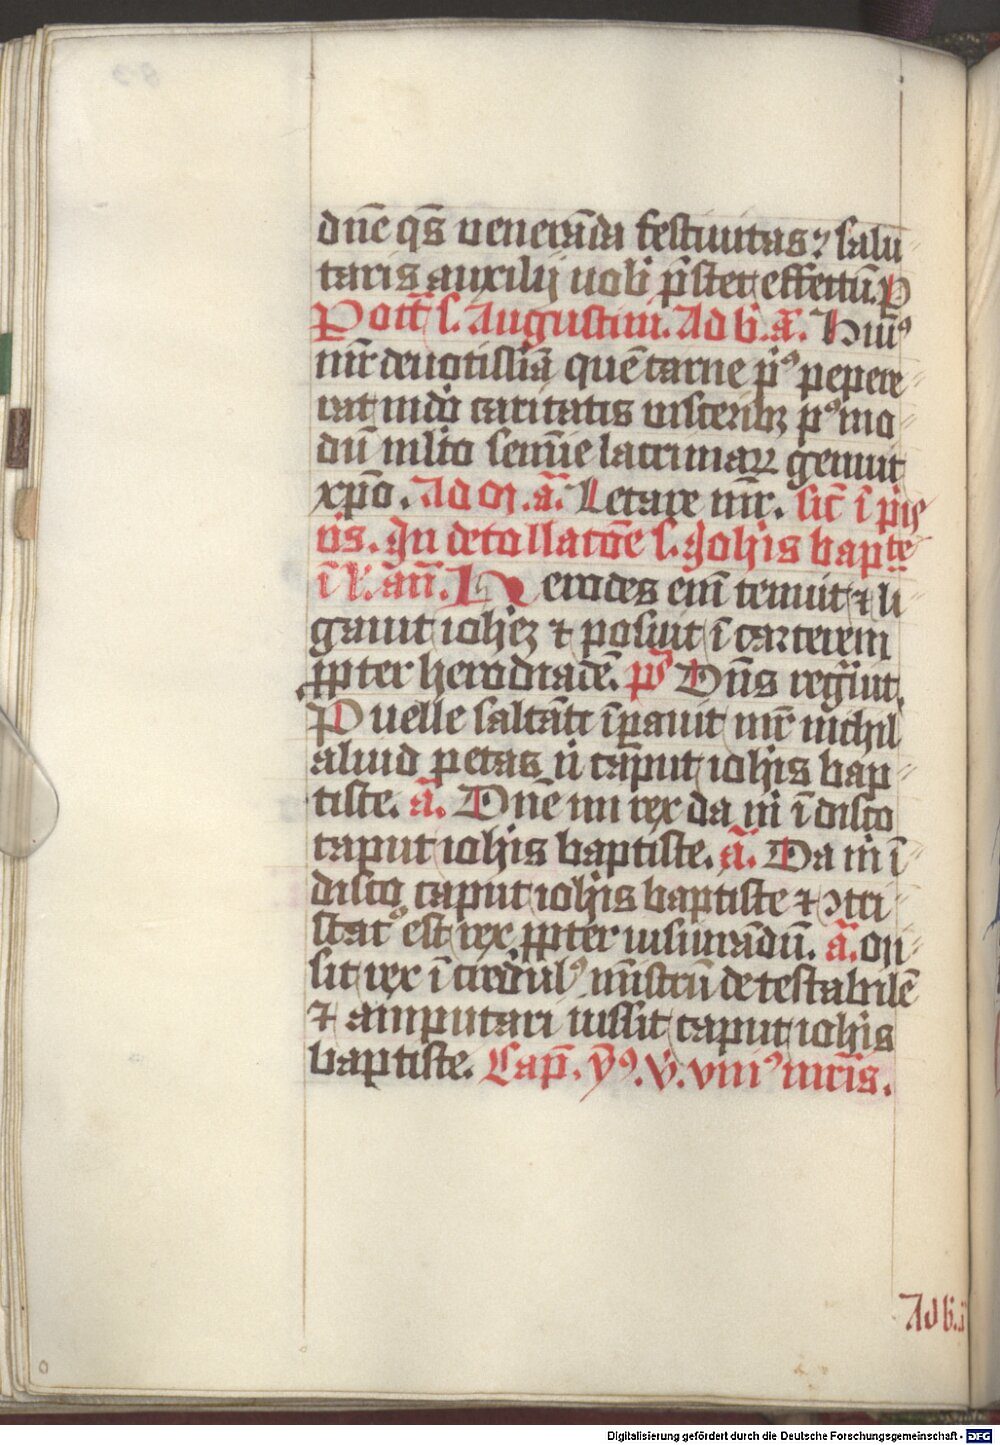 dn̄e qs̄ venerāda festiuitas ⁊ salu
taris auxilij uob̄ p̄stet effectū. P
P oct̄ s. Augustini. Ad b̄. ā. Huiꝰ
mr̄ deuotissiā quē carne pͥꝰ pepere
rat mdō caritatis visceribꝫ pꝰmo
dū mlͭo semīe lacrimaꝝ genuit
xp̄o. Ad m̄. ā. Letare mr̄. sic̄ ī pͥis
vīs. In decollacōe s. Johis bapte
ī l̄. añ. H erodes em̄ tenuit ⁊ li
gauit ioheꝫ ⁊ posuit ī carcerem
ꝓpter herodiadē. pͦ Dn̄s reg̈uit.
P uelle saltāti īpauit mr̄ nichil
aliud petas n̄ cāput iohis bap
tiste. ā. Dn̄e mi rex da m̄ ī disco
caput iohis baptiste. ā. Da m̄ ī
disco caput iohis baptiste ⁊ ↄtri
statꝰ est rex ꝓpter iusiurādū. ā.
sit rex ī
⁊ amputari iussit caput iohis
baptiste. Cap̄. yꝰ. v̄. viiiꝰ mr̄is.
Ad b̄. ā
Digitalisierung gefördert durch die Deutsche Forschungsgemeinschaft - DFG